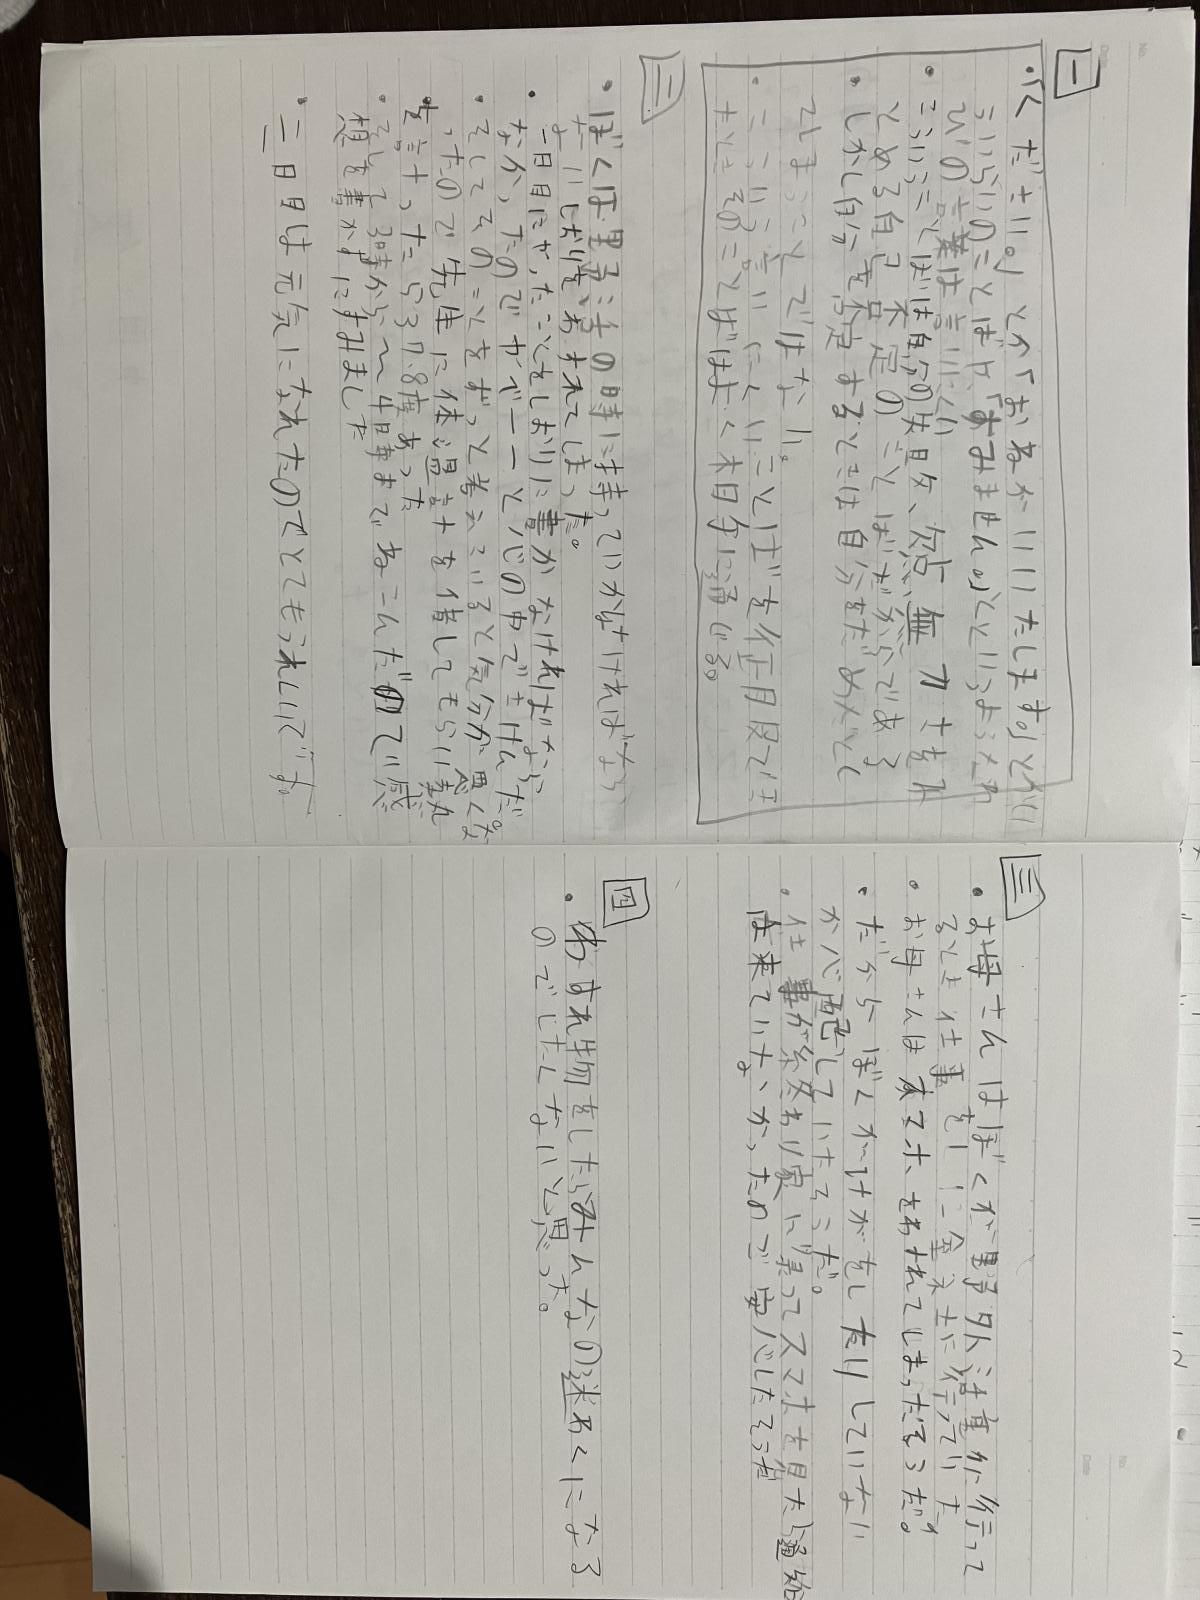 一
・「ください。」とか「おねがいいたします。」とかい
ういらいのことばや、「すみません。」というようなわ
びの言葉は言いにくい
・こういうことばは自分の失敗、欠点、無力さをみ
とめる自己不定のことばだからである
・しかし自分を否定するときは自分をだめだとし
てしまうことではない。
・こういう言いにくいことばを正月段で
たときそのことばはよく相手に通じる。
二
・ぼくは野活の時に持っていかなければなら
ないしおりをわすれてしまった。
・一日目にやったことをしおりに書かなければなら
なかったのでやべーーと心の中でさけんだ。
・そしてそのことをずっと考えていると気分が悪くな
ったので先生に体温計を借してもらい熱
を計ったら37.8度あった
・そして3時から〜4時までねこんだので感
想を書かずにすみました
・二日目は元気になれたのでとてもうれしいです。
三
・お母さんはぼくが野外活動に行って
るとき仕事をしに会社に行っていた
・お母さんはスマホをわすれてしまったそうだ。
・だからぼくがけがをしたりしていない
か心配していたそうだ。
・仕事が終わり家に帰ってスマホを見たら通知
は来ていなかったので安心したそうだ
四
・わすれ物をしたらみんなの迷わくになる
のでしたくないと思った。